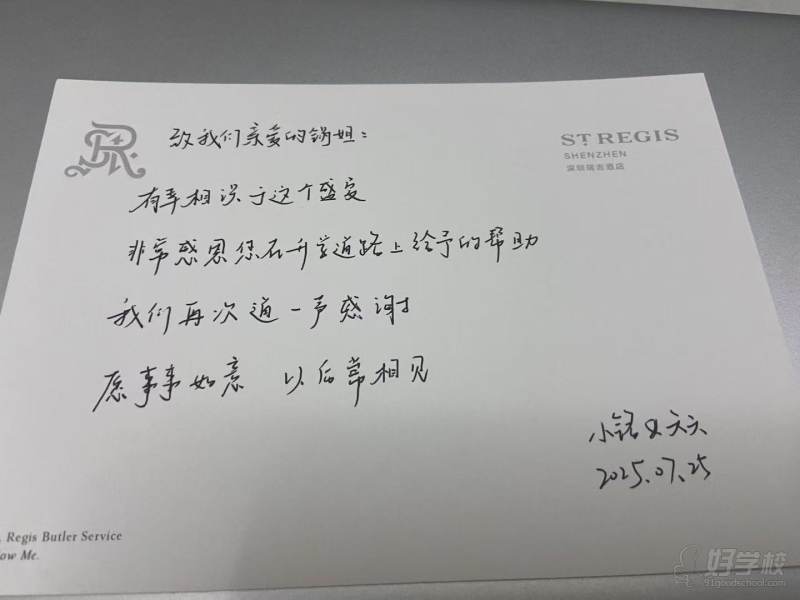 致我们亲爱的锅姐：
ST REGIS
SHENZHEN
深圳瑞吉酒店
有幸相识于这个盛夏
非常感恩您在升学道路上给予的帮助
我们再次道一声感谢
愿事事如意 以后常相见
小铭&天天
2025.07.25
Regis Butler Service
ow Me.
好学校
91goodschool.com